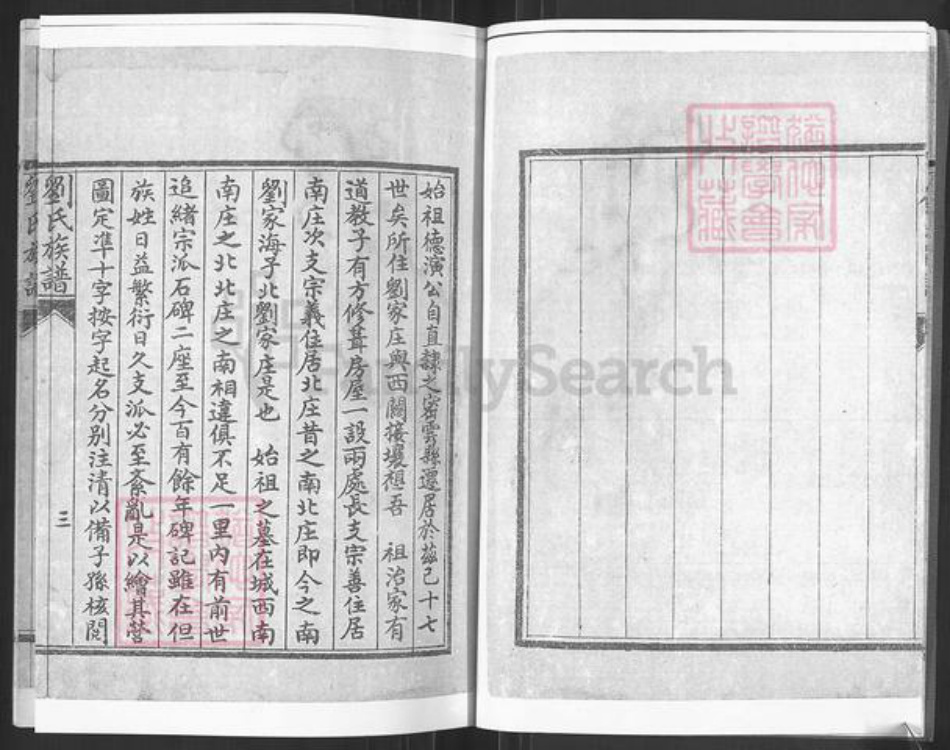 始祖德演公自直隸之密雲縣遷居於茲已十七
世矣所住劉家庄與西關接壤想吾　祖治家有
道教子有方修葺房屋一設兩處長支宗善住居
南庄次支宗義住居北庄昔之南北庄即今之南
劉家海子北劉家庄是也　始祖之墓在城西南
南庄之北北庄之南相違俱不足一里內有前世
追緒宗派石碑二座至今百有餘年碑記雖在但
族姓日益繁衍日久支派必至紊亂是以繪其營
圖定準十字按字起名分別注清以備子孫核閱
劉氏族譜
三
劉氏族
FamilySearch